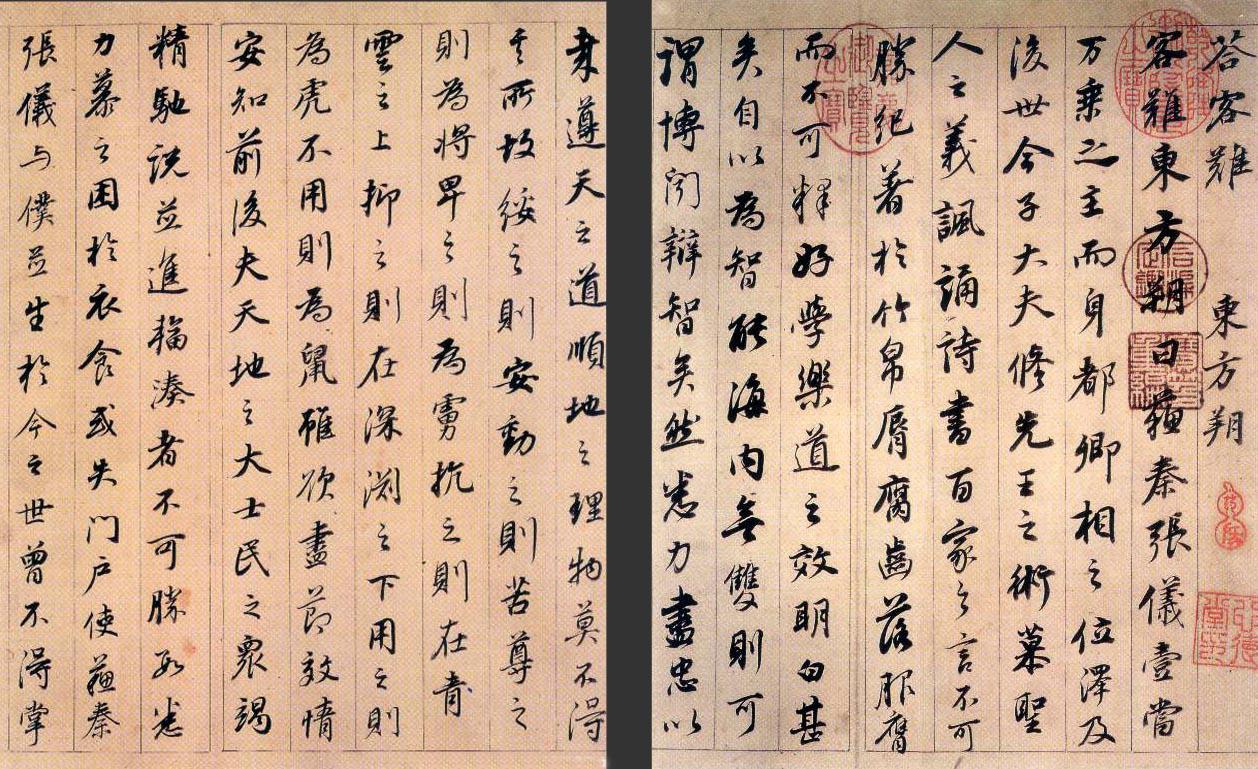 荅客難 東方朔
客難東方朔曰蘇秦張儀壹當
万乘之主而身都卿相之位澤及
後世今子大夫修先王之術慕聖
人之義諷誦詩書百家之言不可
勝紀著於竹帛脣腐齒落服膺
而不可釋好學樂道之效明白甚
矣自以為智能海内無雙則可
謂博聞辯智矣然悉力盡忠以
聿遵天之道順地之理物莫不得
其所故綏之則安動之則苦尊之
則為將卑之則為虜抗之則在青
雲之上抑之則在深淵之下用之則
為虎不用則為鼠雖欲盡節效情
安知前後夫天地之大士民之衆竭
精馳説並進輻湊者不可勝數悉
力慕之困於衣食或失門户使蘇秦
張儀与僕並生於今之世曾不得掌